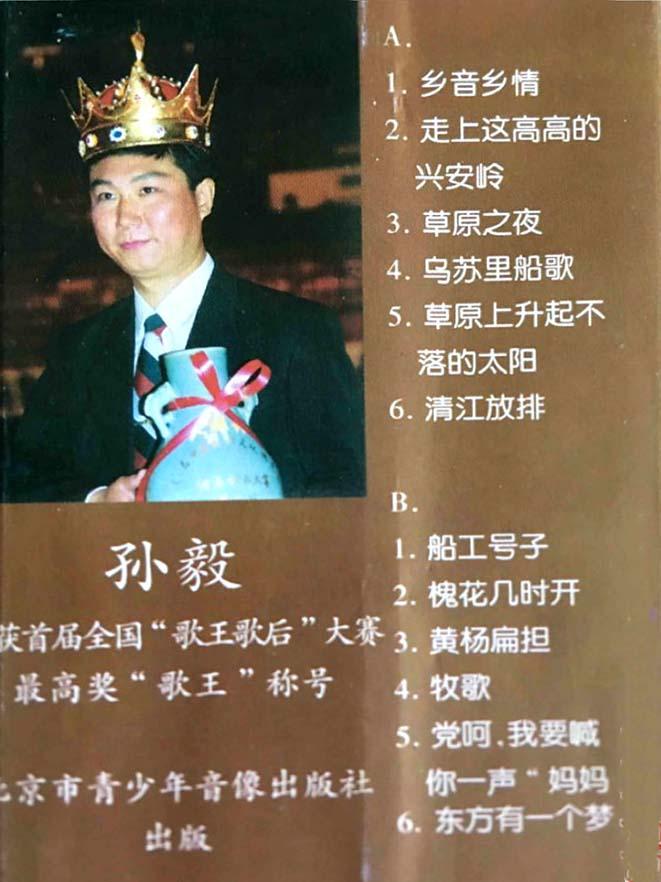 孙毅
获首届全国“歌王歌后”大赛
最高奖“歌王”称号
北京市青少年音像出版社
出版
A.
1. 乡音乡情
2. 走上这高高的
兴安岭
3. 草原之夜
4. 乌苏里船歌
5. 草原上升起不
落的太阳
6. 清江放排
B.
1. 船工号子
2. 槐花几时开
3. 黄杨扁担
4. 牧歌
5. 党呵,我要喊
你一声“妈妈
6. 东方有一个梦